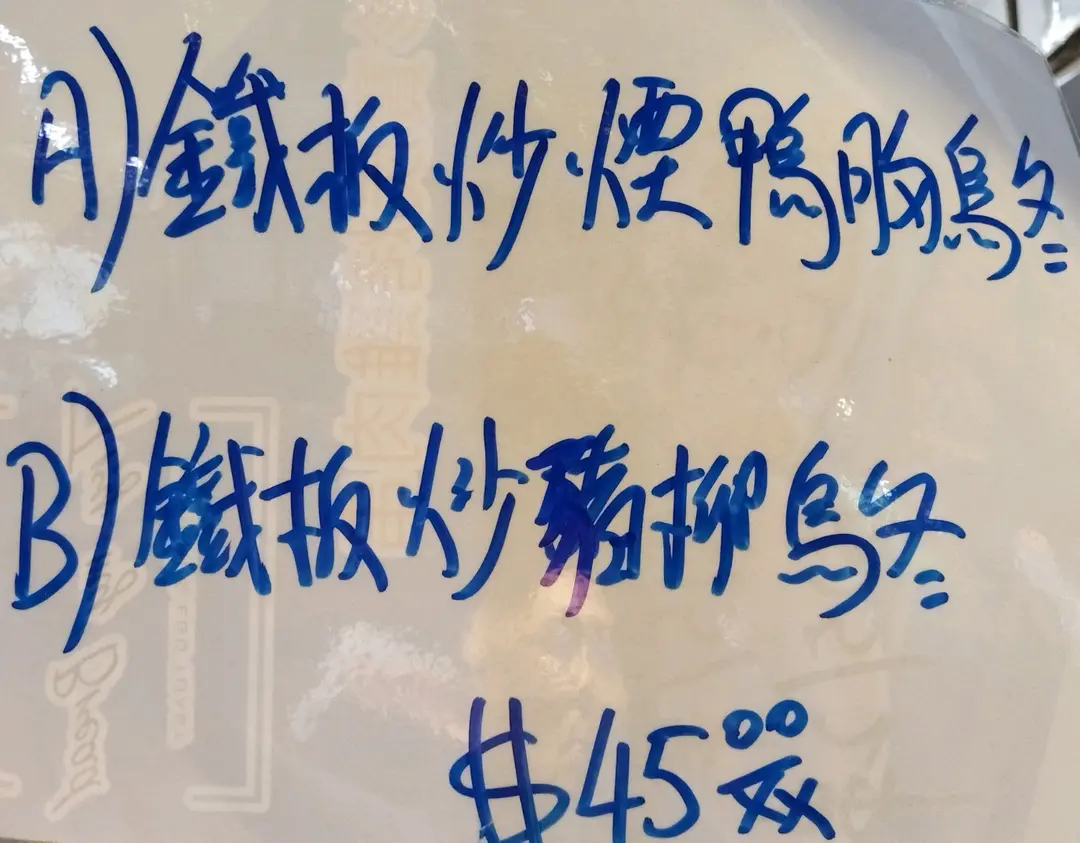 A) 鐵板炒煙鴨胸烏冬
B) 鐵板炒豬柳烏冬
$45.00